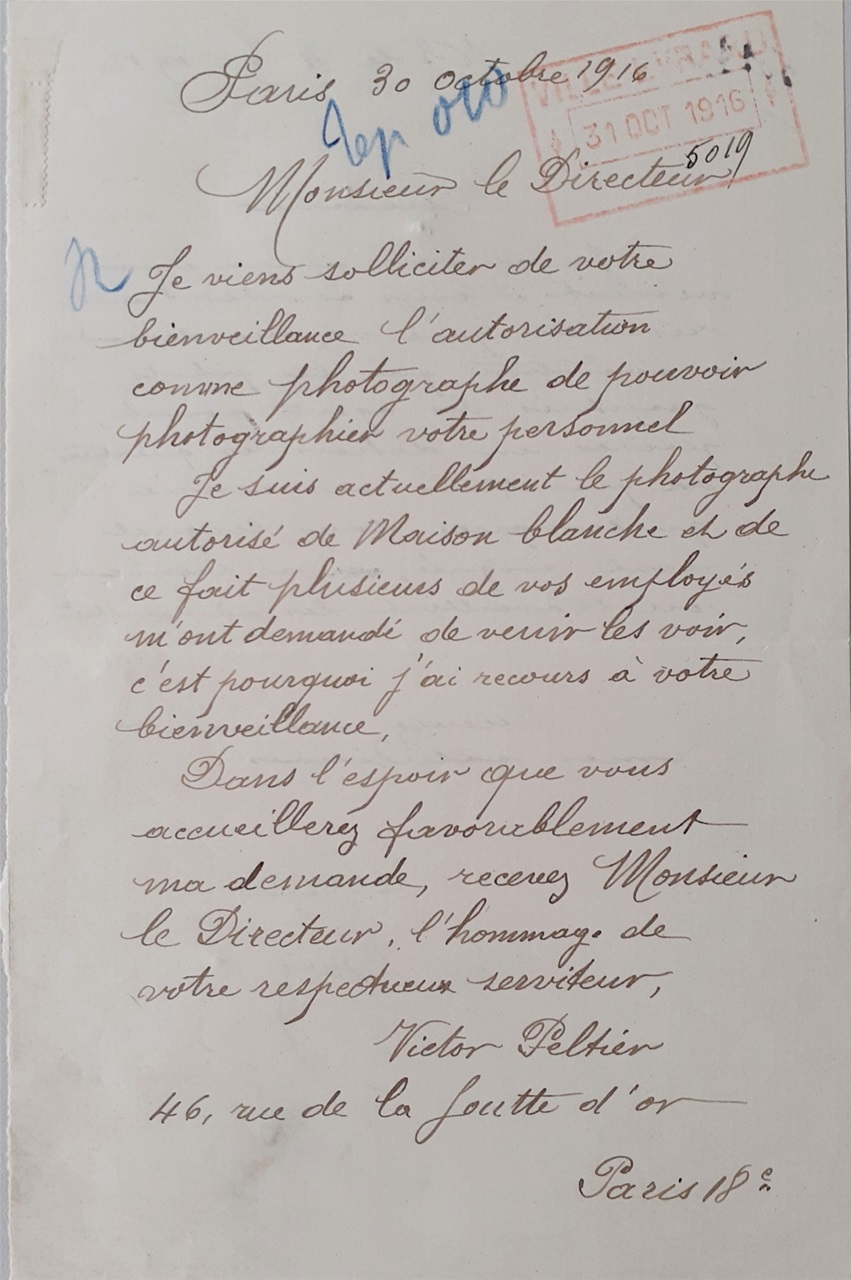 Paris 30 octobre 1916
VILLE EVRARD
31 OCT 1916
5019
Monsieur le Directeur
Je viens solliciter de votre
bienveillance l'autorisation
comme photographe de pouvoir
photographier votre personnel
Je suis actuellement le photographe
autorisé de Maison blanche et de
ce fait plusieurs de vos employés
m'ont demandé de venir les voir,
c'est pourquoi j'ai recours à votre
bienveillance,
Dans l'espoir que vous
accueillerez favorablement
ma demande, recevez Monsieur
le Directeur, l'hommage de
votre respectueux serviteur,
Victor Peltier
46, rue de la Goutte d'or
Paris 18e